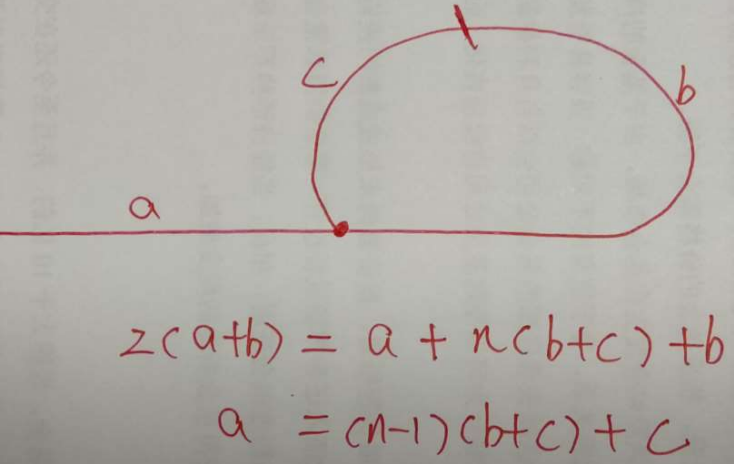 c
b
a
2(a+b) = a + n(b+c) + b
a = (n-1)(b+c) + c